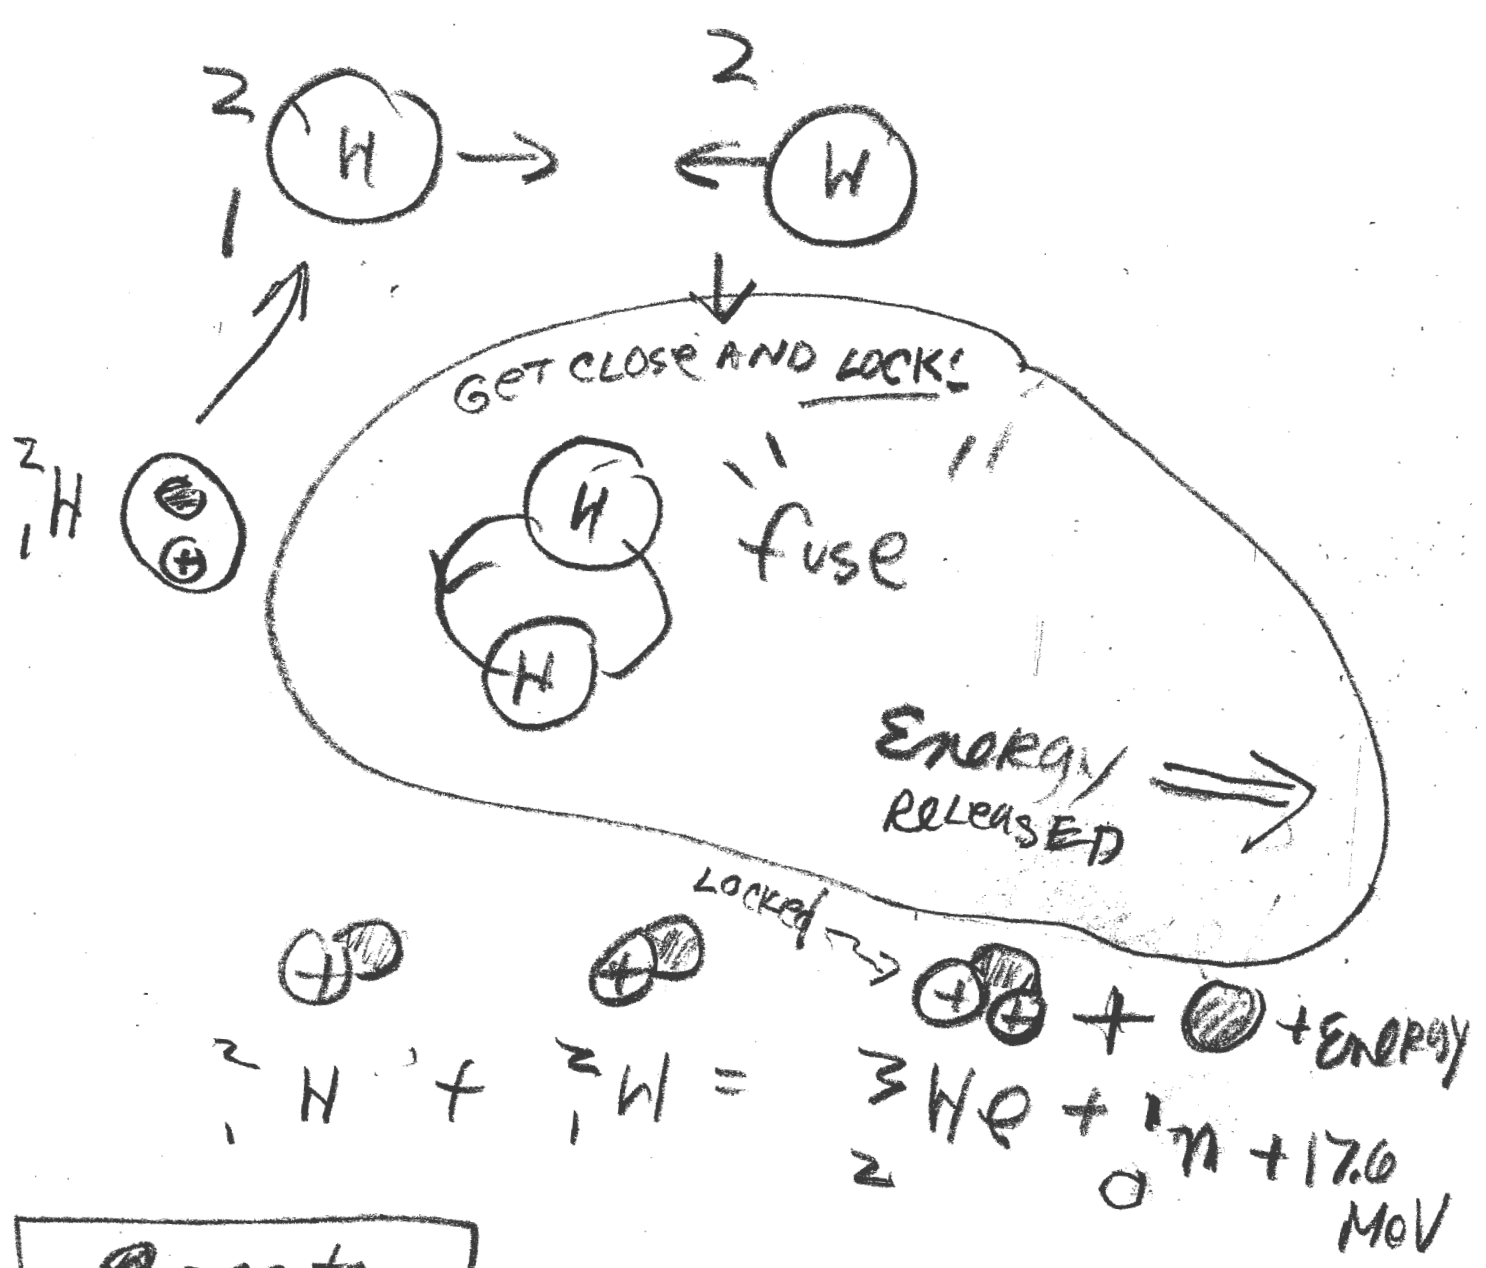 2
1
H
2
H
GET CLOSE AND LOCK!
2
1
H
+
H
fuse
H
Energy
Released
Locked
+
+
+
+
+
+ Energy
2
1
H + 2
1
H = 3
2
He + 1
0
n + 17.6
MeV